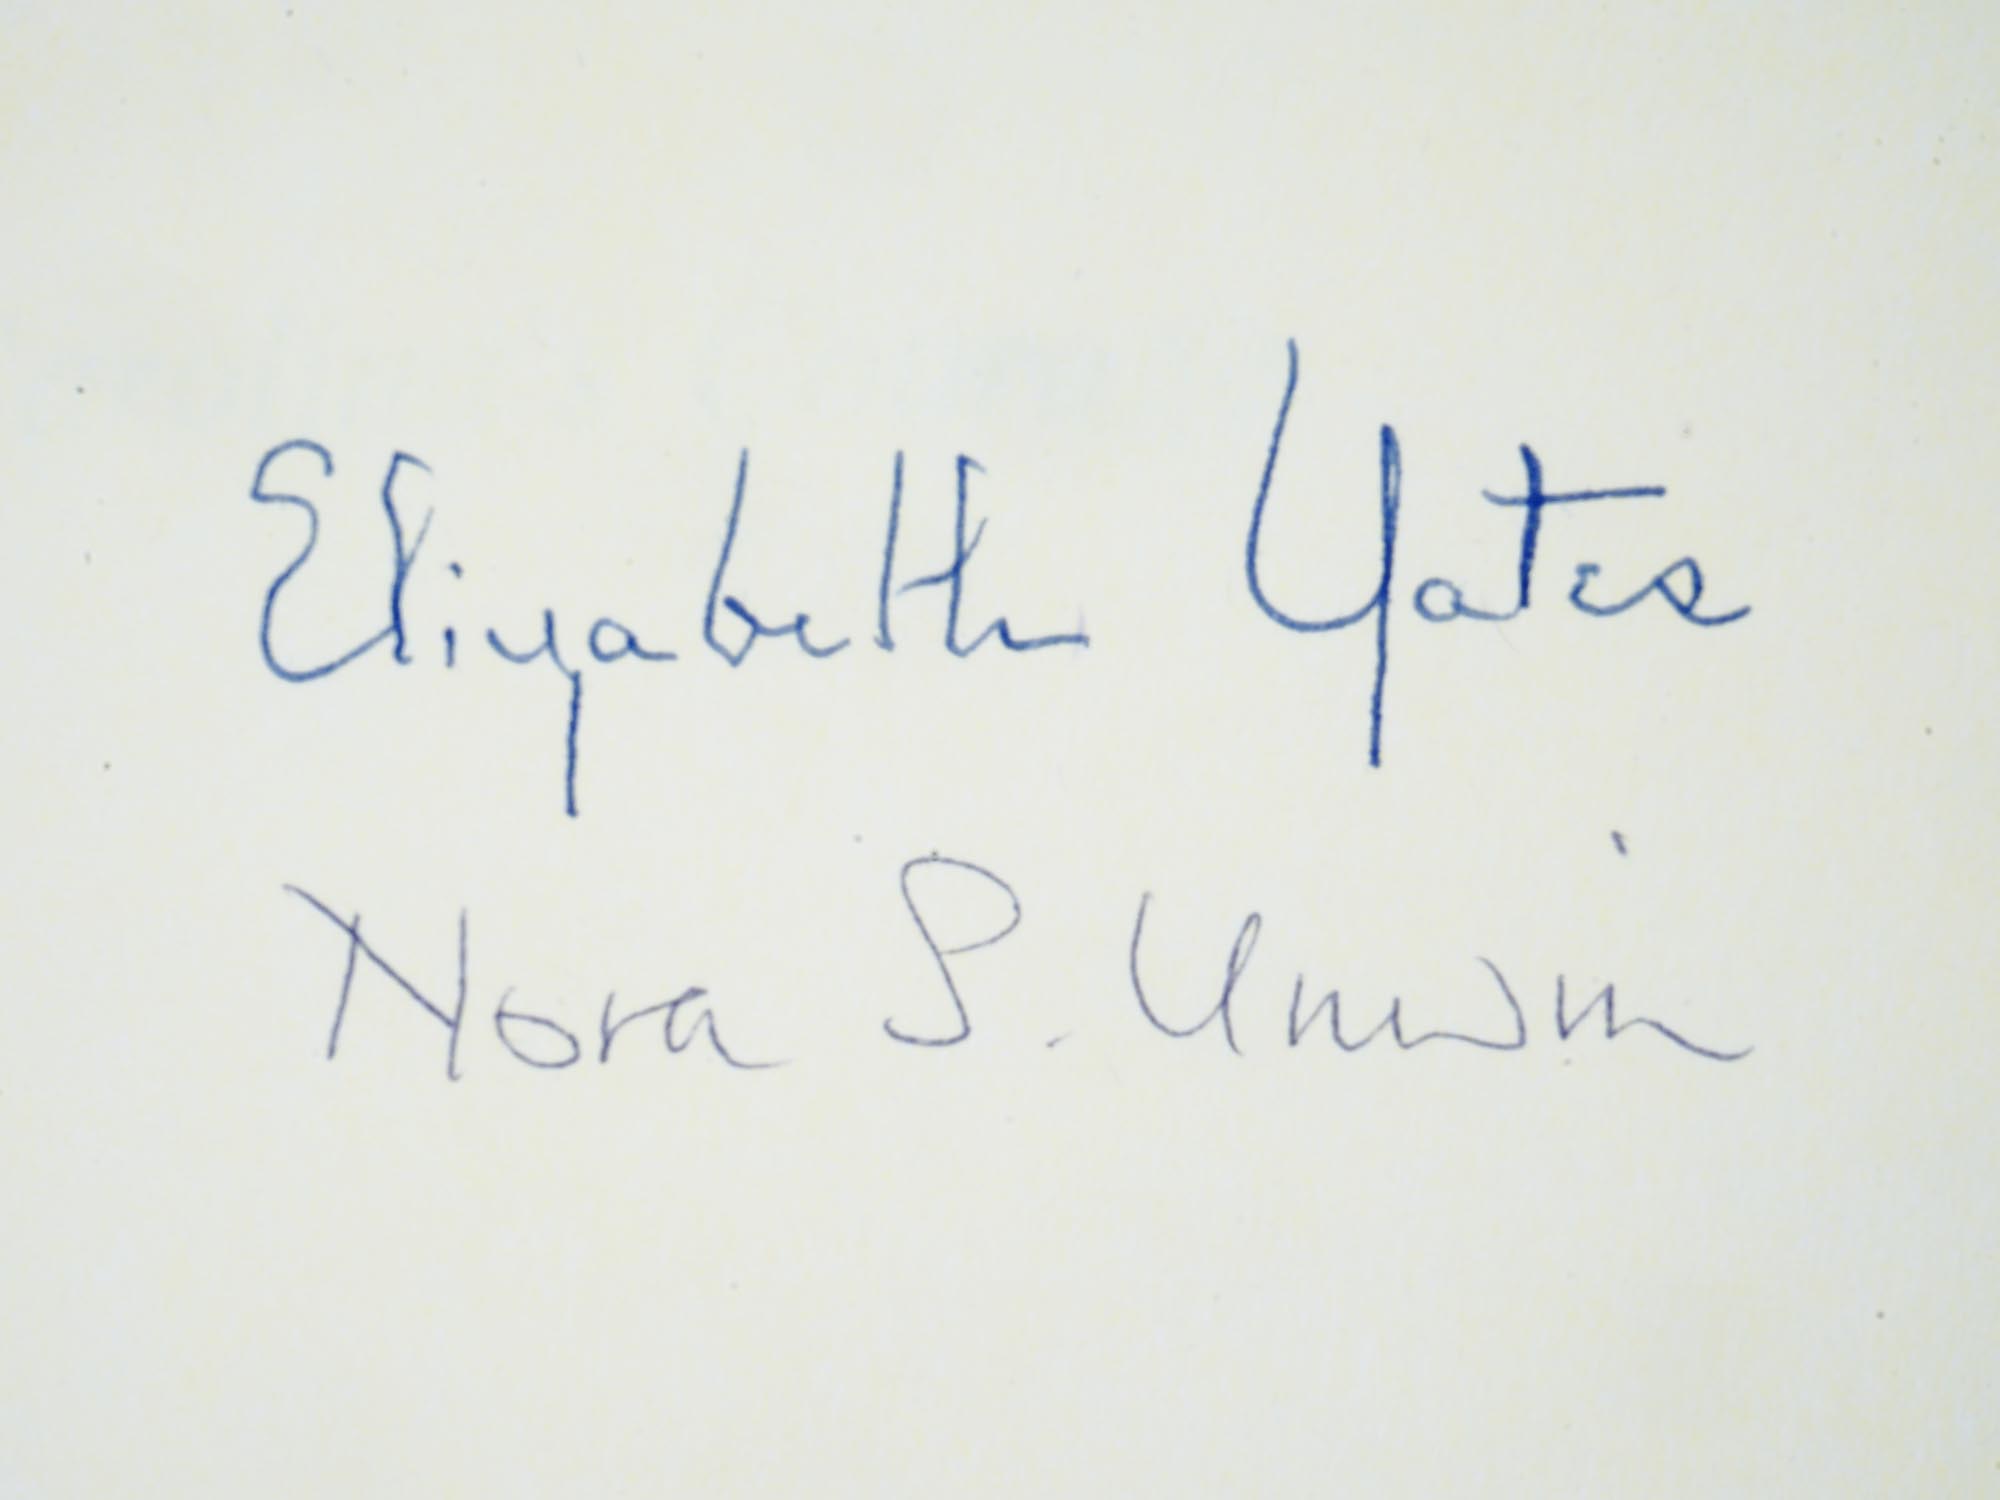 Elizabeth Yates
Nora S. Unwin